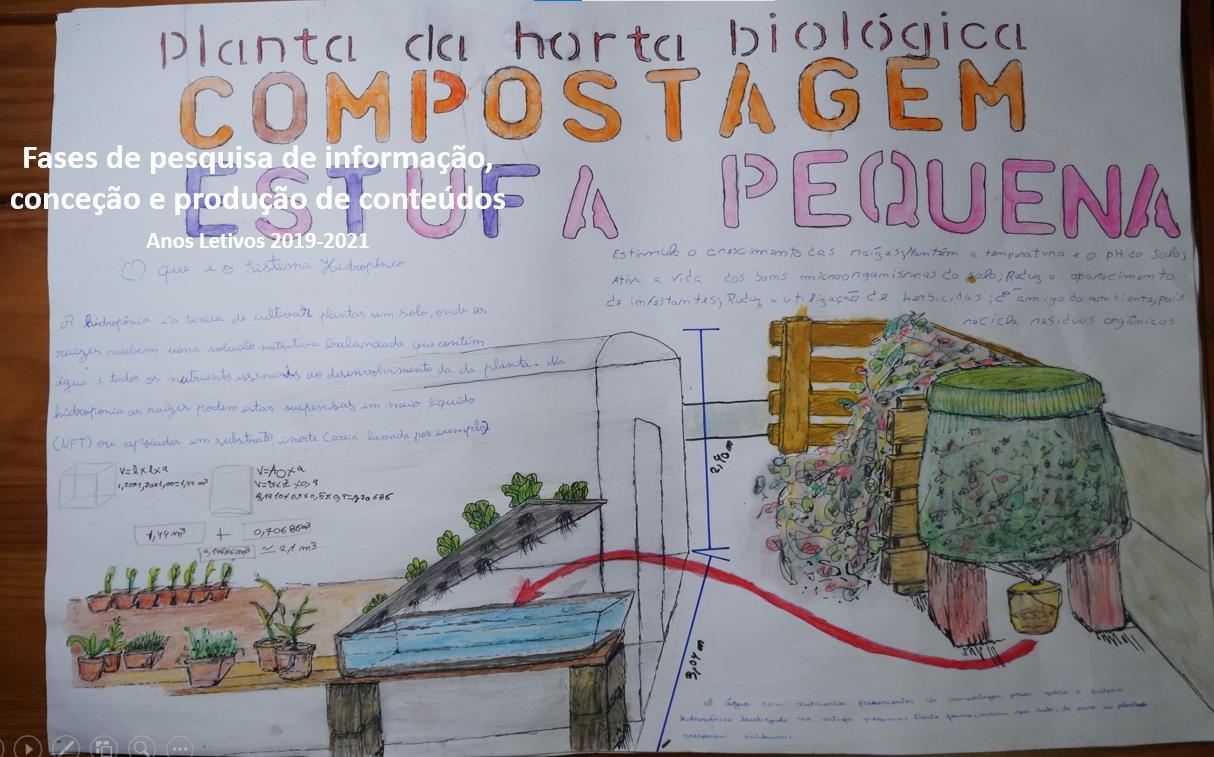 planta da horta biológica
COMPOSTAGEM
ESTUFA PEQUENA
Fases de pesquisa de informação,
conceção e produção de conteúdos
Anos Letivos 2019-2021
O que é o Sistema Hidropônico
A hidroponia é a técnica de cultivar plantas sem solo, onde as
raízes recebem uma solução nutritiva balanceada que contém
água e todos os nutrientes essenciais ao desenvolvimento da da planta. Na
hidroponia as raízes podem estar suspensas em meio liquido
(NFT) ou apoiadas em substrato inerte (areia lavada por exemplo)
Estimula o crescimento das raízes; Mantém a temperatura e o pH do Solo;
Ativa a vida dos bons microorganismos do solo; Reduz o aparecimento
de infestantes; Reduz a utilização de herbicidas; é amigo do ambiente, pois
recicla resíduos orgânicos
V=l x l x a
1,20x1,20x1,00=1,44 m³
V=A x a
1,44 m³ + 0,70686m³
2,14686m³ ≈ 2,1 m³
2,40 m
3,04 m
A água com nutrientes provenientes da compostagem passa para o sistema
hidropónico localizado na estufa pequena. Desta forma, mesmo sem solo, dá para as plantas
crescerem